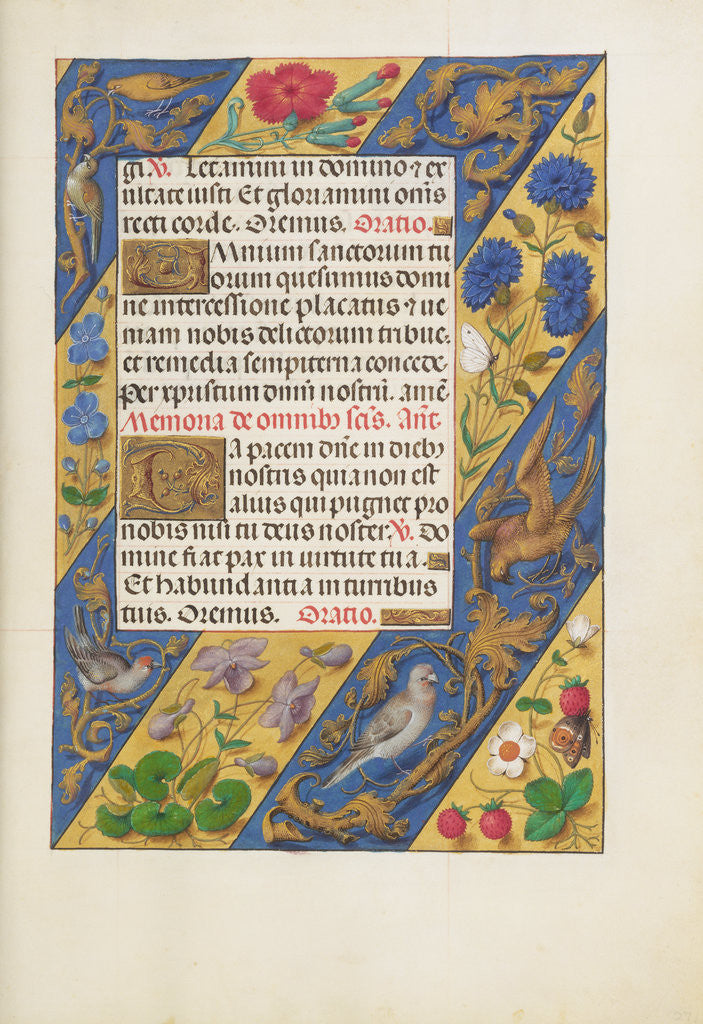 gi. V. Letamini in domino ⁊ ex
ultate iusti Et gloriamini om̄s
recti corde. Oremus. Oratio.
OMnium sanctorum tu
orum quesumus domi
ne intercessione placatus ⁊ ue
niam nobis delictorum tribue.
et remedia sempiterna concede
Per xpristum dnm̄ nostrū. amē
Memoria de omnibꝫ scīs. Anͭ.
DA pacem dn̄e in diebꝫ
nostris quia non est
alius qui pugnet pro
nobis nisi tu deus noster. V. Do
mine fiat pax in uirtute tua.
Et habundantia in turribus
tuis. Oremus. Oratio.